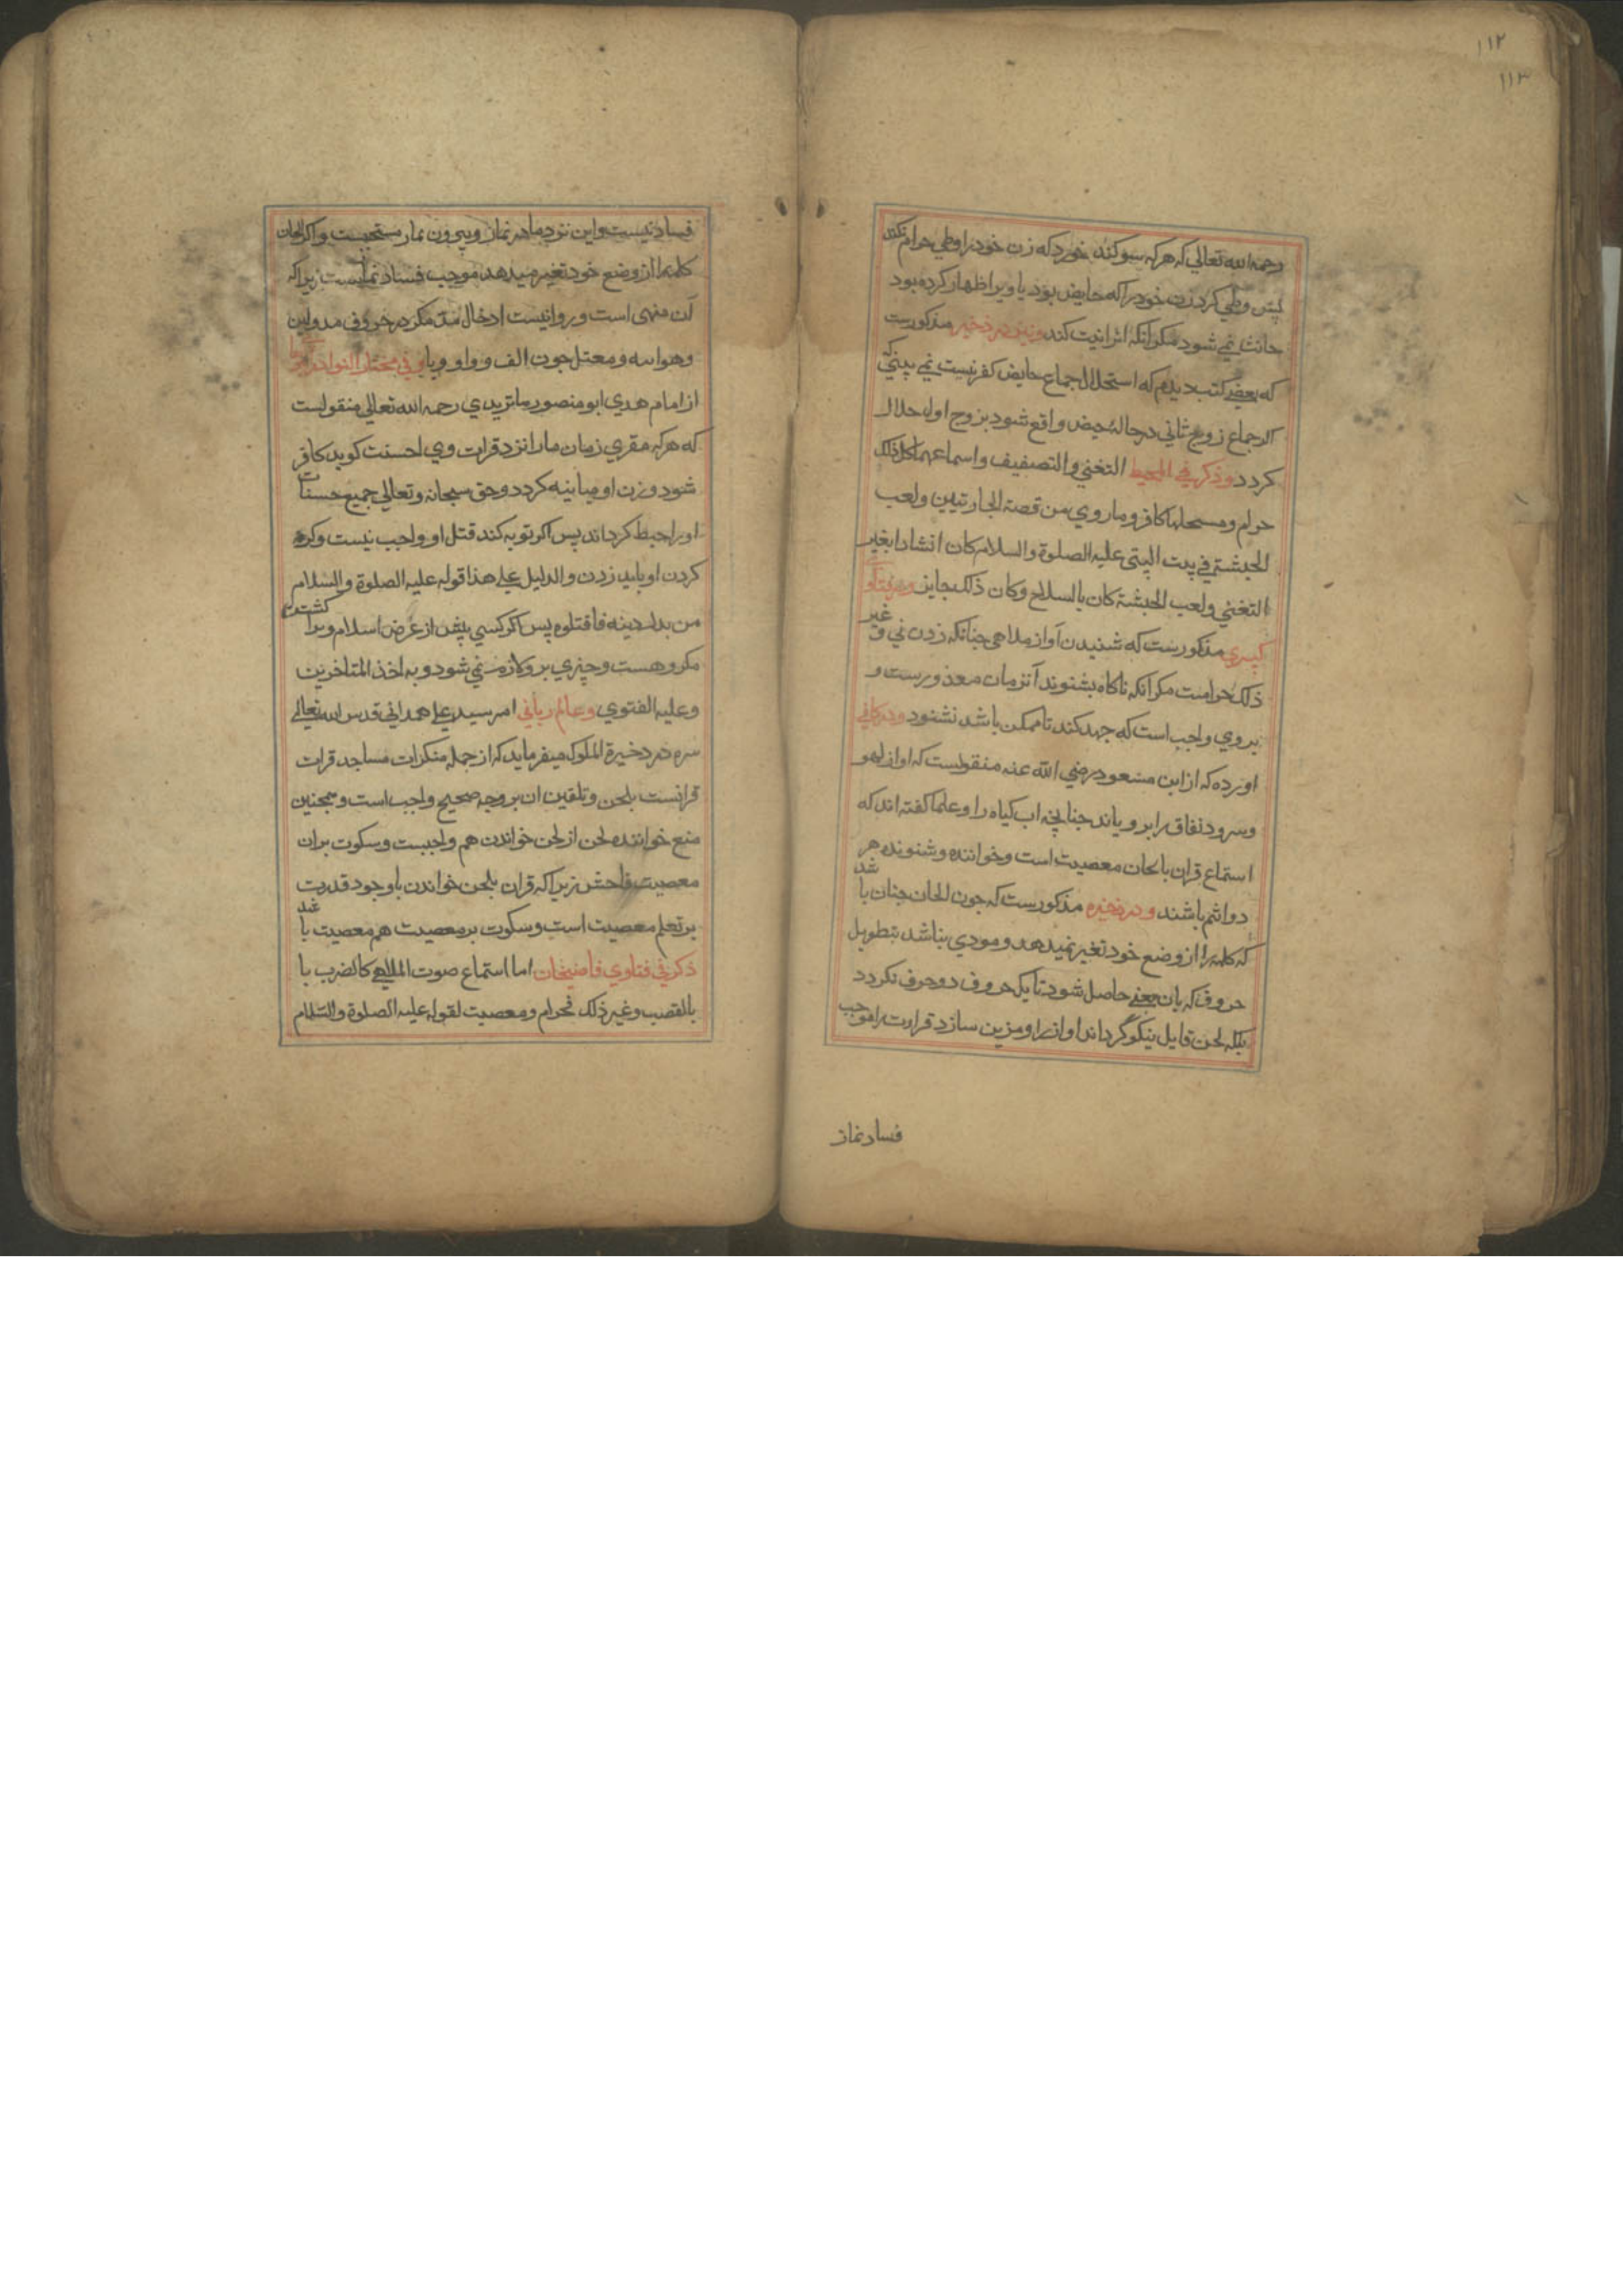 ۱۱۲
۱۱۳
رحمه الله تعالی که هرکه سوکند خورد که زن خود را وطی حرام نکند
پس وطی کرد زن خود را که حایض بود یا ویرا ظهار کرده بود
حانث نمی شود مکر انکه اثرا نیت کند ونیز در ذخیره مذکورست
که بعضی کتب دیدم که استحلال جماع حایض کفر نیست نمی بینی که
اکر جماع زوج ثانی در حالة حیض واقع شود بزوج اول حلال
کردد وذکر فی المحیط التغنی والتصفیف واسماعهما کل ذلک
حرام ومستحلها کافر وماروی من قصة الجاریتین ولعب
الحبشة فی بیت النبی علیه الصلوة والسلام کان انشادا بغیر
التغنی ولعب الحبشة کان بالسلاح وکان ذلک بجایز ودر فتاوی
کبری مذکورست که شنیدن آواز ملاهی جنانکه زدن نی و غیر
ذلک حرامست مکر انکه ناکاه بشنوند آنزمان معذورست و
بروی واجب است که جهد کند تا ممکن باشد نشنود ودر کافی
اورده که از ابن مسعود رضی الله عنه منقولست که اواز لهو
وسرود نفاق را برویاند جنانچه اب کیاه را وعلما کفته اند که
استماع قران بالحان معصیت است وخواننده وشنونده هر
دو اثم باشند ودر ذخیره مذکورست که جون الحان جنان با شد
که کلمه را از وضع خود تغیر نمیدهد ومودی نباشد بتطویل
حروف که بان یعنی حاصل شود تا یک حروف دو حرف نکردد
بلکه لحن قایل نیکو گرداند اواز را ومزین سازد قراءت را موجب
فساد نماز
فساد نیست واین نزد ما در نماز وبیرون نماز مستحبست واکر الحان
کلمه را از وضع خود تغیر میدهد موجب فساد نمازست زیراکه
آن منهی است وروا نیست ادخال مد مکر در حروف مد ولین
وهوائیه ومعتل جون الف وواو ویا وفی مختار النوادر
از امام هدی ابو منصور ماتریدی رحمه الله تعالی منقولست
که هرکه مقری زمان ما را نزد قرات وی احسنت کوید کافر
شود وزن او مباینه کردد وحق سبحانه وتعالی جمیع حسنات
اورا حبط کرداند پس اکر توبه کند قتل او واجب نیست وکره
کردن او باید زدن والدلیل علی هذا قوله علیه الصلوة والسلام
من بدل دینه فاقتلوه پس اکر کسی پیش از عرض اسلام ویرا کشت
مکروهست وچیزی برو لازم نمی شود وبه اخذ المتاخرین
وعلیه الفتوی وعالم ربانی امر سید علی همدانی قدس الله تعالی
سره در ذخیرة الملوک میفرماید که از جمله منکرات مساجد قرات
قرانست بلحن وتلقین ان بر وجه صحیح واجب است وهمجنین
منع خواننده لحن از لحن خواندن هم واجبست وسکوت بران
معصیت فاحش زیراکه قران بلحن خواندن با وجود قدرت
بر تعلم معصیت است وسکوت بر معصیت هم معصیت با شد
ذکر فی فتاوی قاضیخان اما استماع صوت الملاهی کالضرب با
بالقصب وغیر ذلک فحرام ومعصیت لقوله علیه الصلوة والسلام